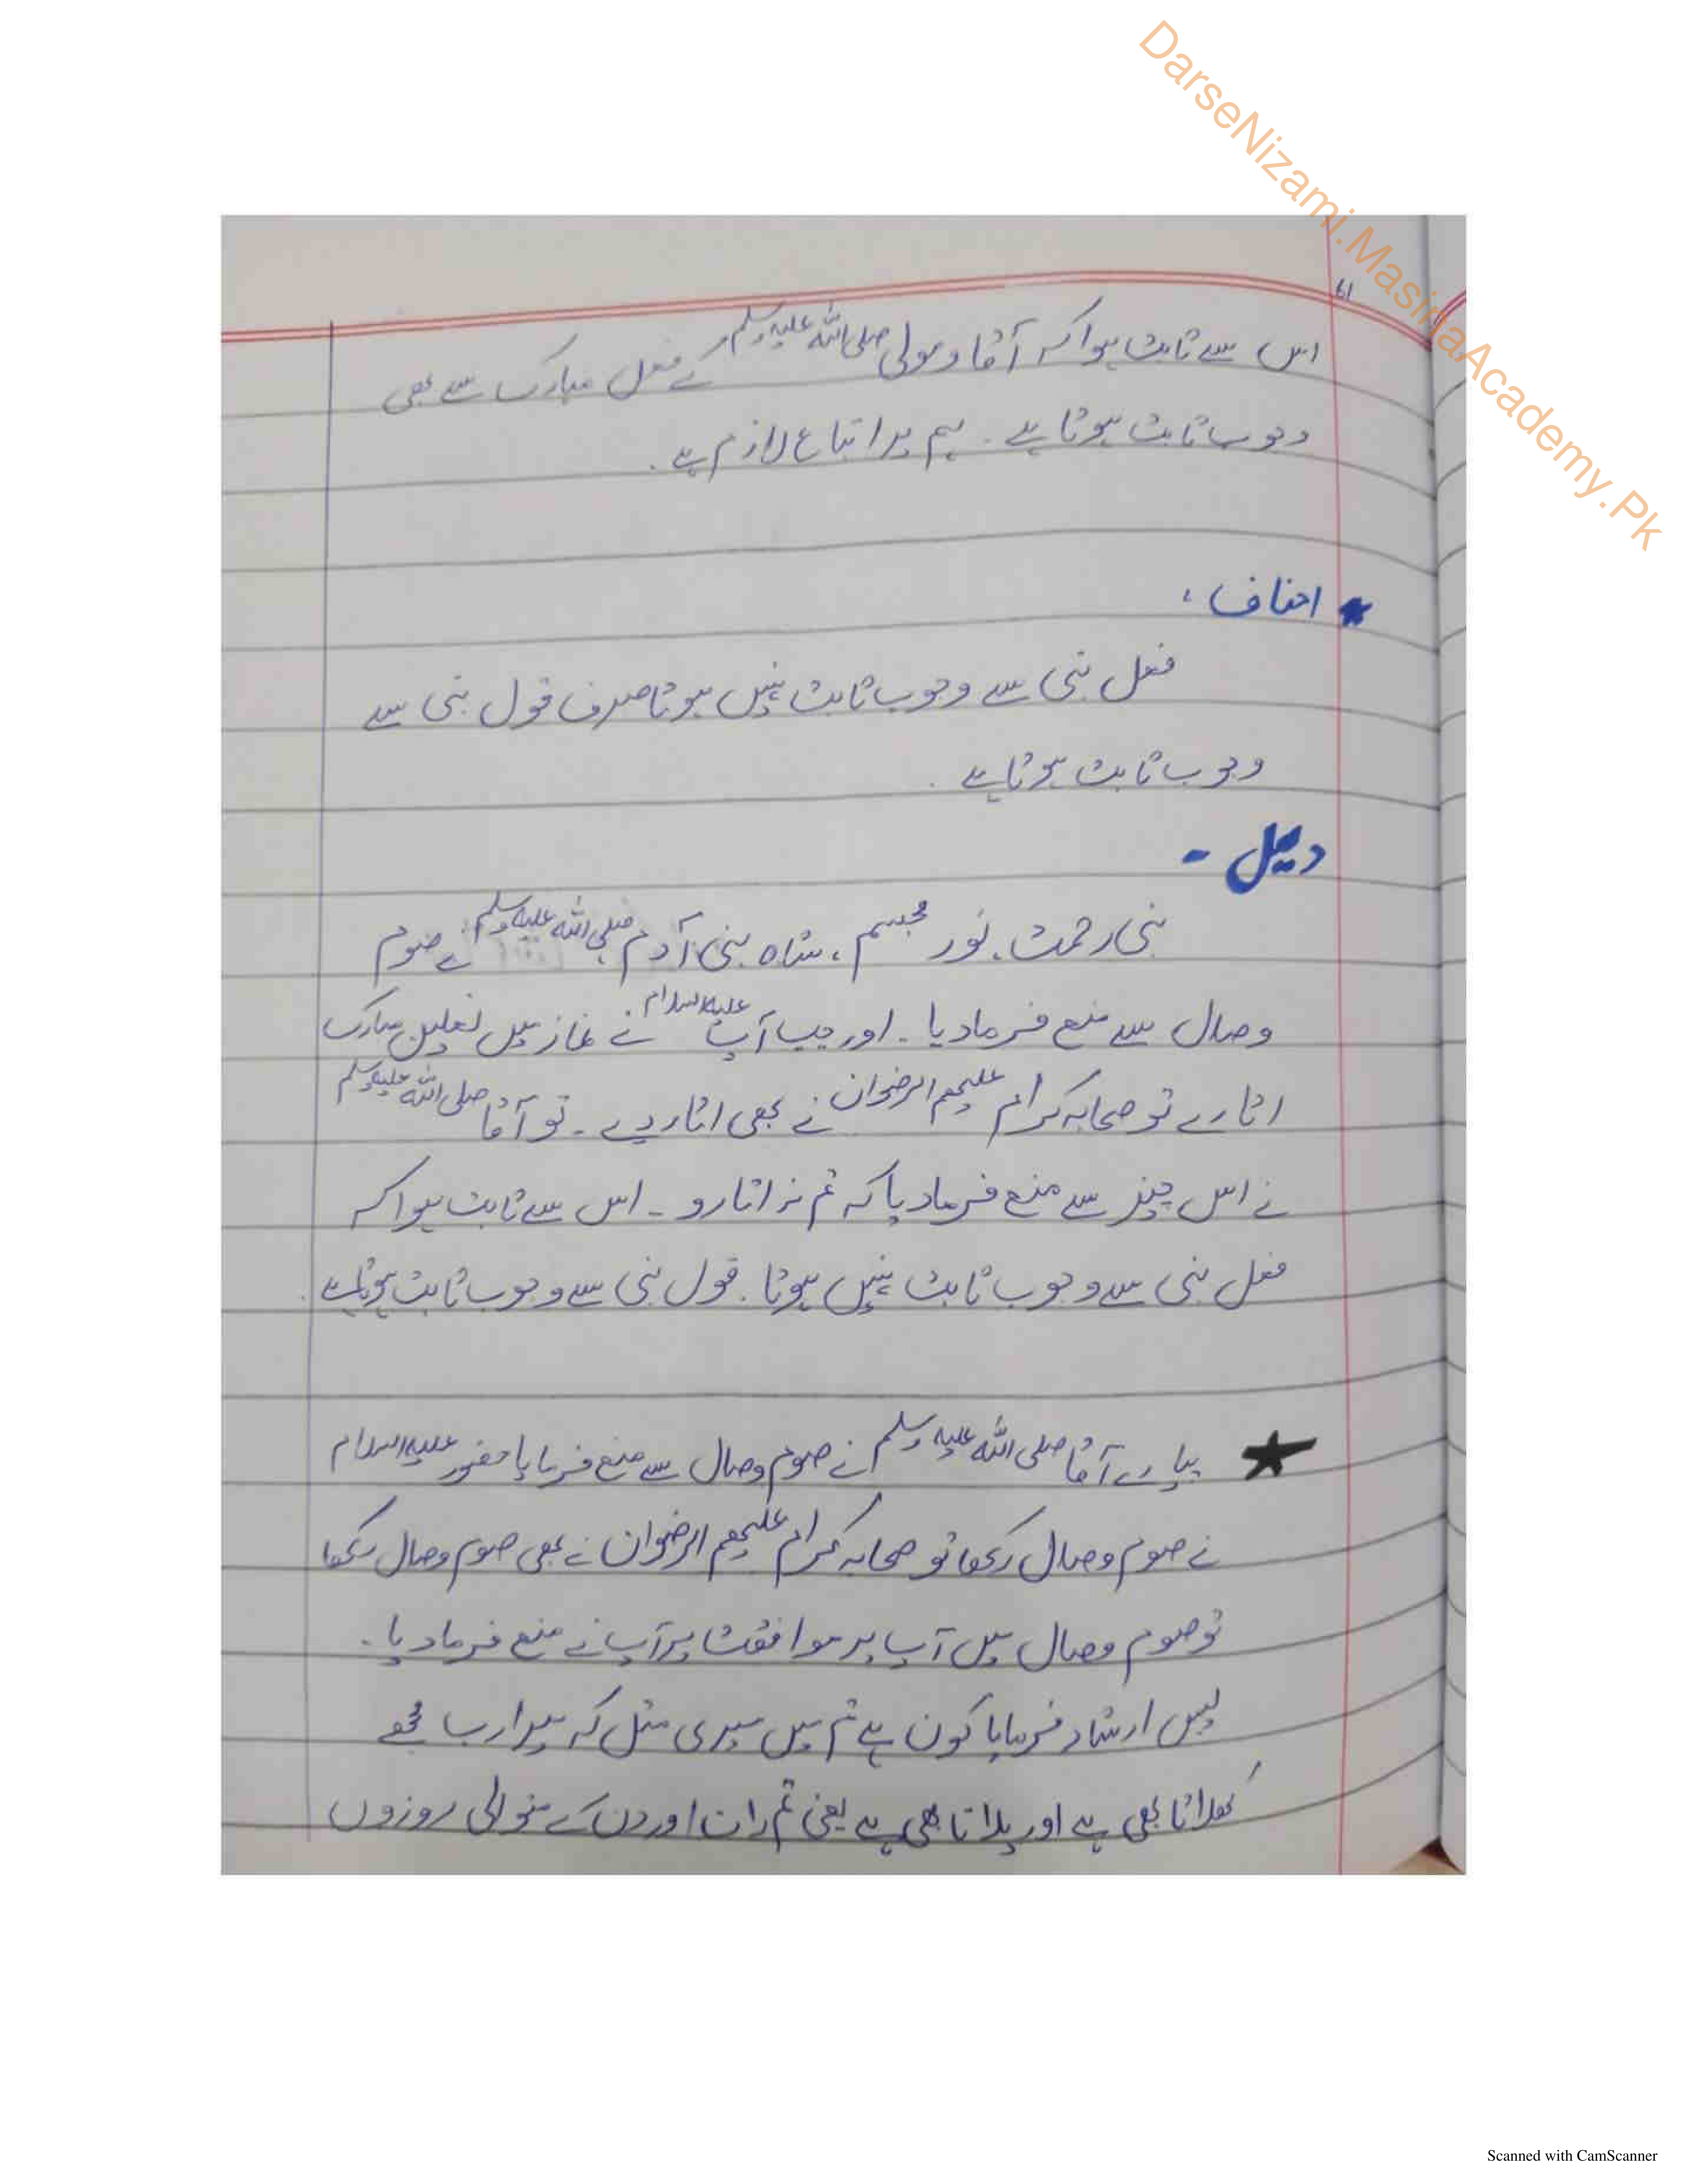 DarseNizami.MasinaAcademy.Pk
61
اس سے ثابت ہوا کہ آقا و مولی صلی اللہ علیہ وسلم کے فعل مبارک سے بھی
وجوب ثابت ہوتا ہے۔ ہم پر اتباع لازم ہے۔
★ احناف :
فعل نبی سے وجوب ثابت نہیں ہوتا صرف قول نبی سے
وجوب ثابت ہوتا ہے۔
دلیل -
نبی رحمت، نور مجسم، شاہ بنی آدم صلی اللہ علیہ وسلم نے صوم
وصال سے منع فرمادیا۔ اور جب آپ علیہ السلام نے نماز میں نعلین مبارک
اتارے تو صحابہ کرام علیھم الرضوان نے بھی اتار دیے۔ تو آقا صلی اللہ علیہ وسلم
نے اس چیز سے منع فرمادیا کہ تم نہ اتارو۔ اس سے ثابت ہوا کہ
فعل نبی سے وجوب ثابت نہیں ہوتا۔ قول نبی سے وجوب ثابت ہوتا ہے۔
★ پیارے آقا صلی اللہ علیہ وسلم نے صوم وصال سے منع فرمایا حضور علیہ السلام
نے صوم وصال رکھا تو صحابہ کرام علیھم الرضوان نے بھی صوم وصال رکھا
تو صوم وصال میں آپ پر موافقت پر آپ نے منع فرمادیا۔
پس ارشاد فرمایا کون ہے تم میں میری مثل کہ میرا رب مجھے
کھلاتا بھی ہے اور پلاتا بھی ہے یعنی تم رات اور دن کے متوالی روزوں
Scanned with CamScanner